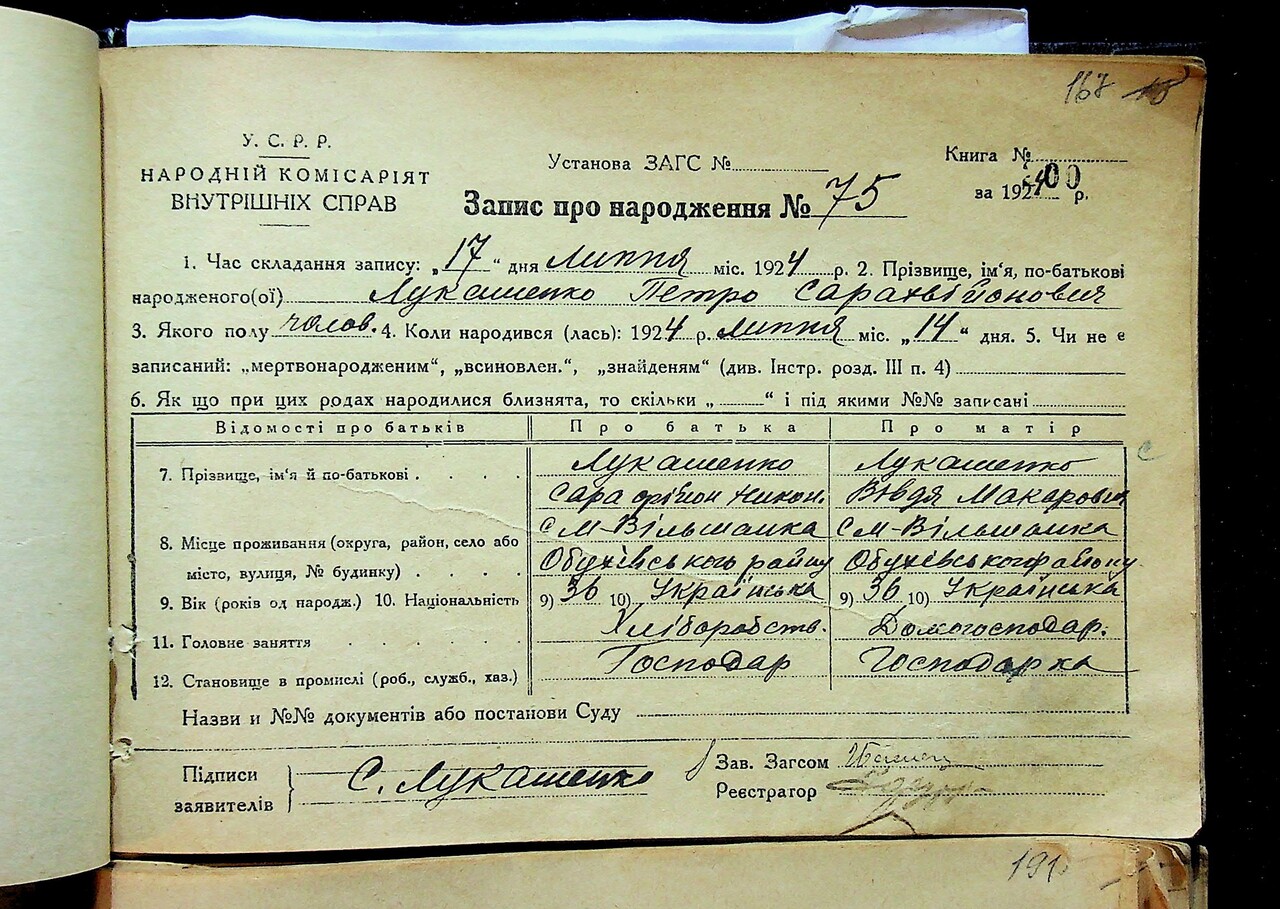 167 18
У. С. Р. Р.
НАРОДНІЙ КОМІСАРІЯТ
ВНУТРІШНІХ СПРАВ
Установа ЗАГС №
Книга №
за 1924 р.
00
Запис про народження № 75
1. Час складання запису: „17“ дня Липня міс. 1924 р. 2. Прізвище, ім‘я, по-батькові
народженого(ої) Лукашенко Петро Сарахвійонович
3. Якого полу чолов. 4. Коли народився (лась): 1924 р. Липня міс. „14“ дня. 5. Чи не є
записаний: „мертвонародженим“, „всиновлен.“, „знайденям“ (див. Інстр. розд. III п. 4)
6. Як що при цих родах народилися близнята, то скільки „ “ і під якими №№ записані
Відомості про батьків Про батька Про матір
7. Прізвище, ім‘я й по-батькові Лукашенко Лукашенко
Сарафійон Никон. Вівдя Макаровна
8. Місце проживання (округа, район, село або с М-Вільшанка с М-Вільшанка
місто, вулиця, № будинку) Обухівського району Обухівського району
9. Вік (років од народж.) 10. Національність 9) 36 10) Українська 9) 36 10) Українська
11. Головне заняття Хліборобств. Домогосподар.
12. Становище в промислі (роб., служб., хаз.) Господар Господарка
Назви и №№ документів або постанови Суду
Підписи
заявителів
С. Лукашенко
Зав. Загсом
Реєстратор
191